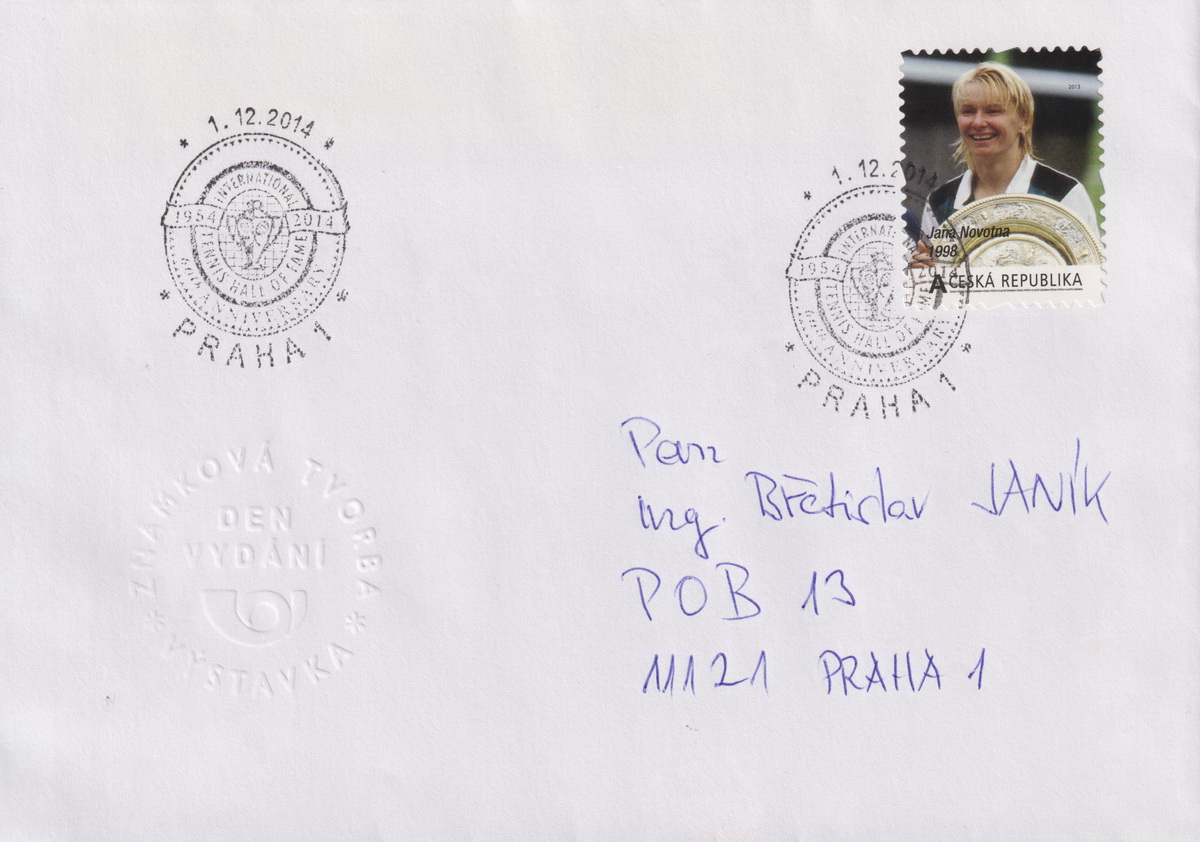 * 1.12.2014 *
INTERNATIONAL
1954 2014
TENNIS HALL OF FAME
60th ANNIVERSARY
* PRAHA 1 *
* 1.12.2014
INTERNATIONAL
1954 2014
TENNIS HALL OF FAME
60th ANNIVERSARY
* PRAHA 1 *
2013
Jana Novotna
1998
A ČESKÁ REPUBLIKA
ZNÁMKOVÁ TVORBA
DEN
VYDÁNÍ
* VÝSTAVKA *
Pan
Ing. Břetislav JANÍK
POB 13
11121 PRAHA 1